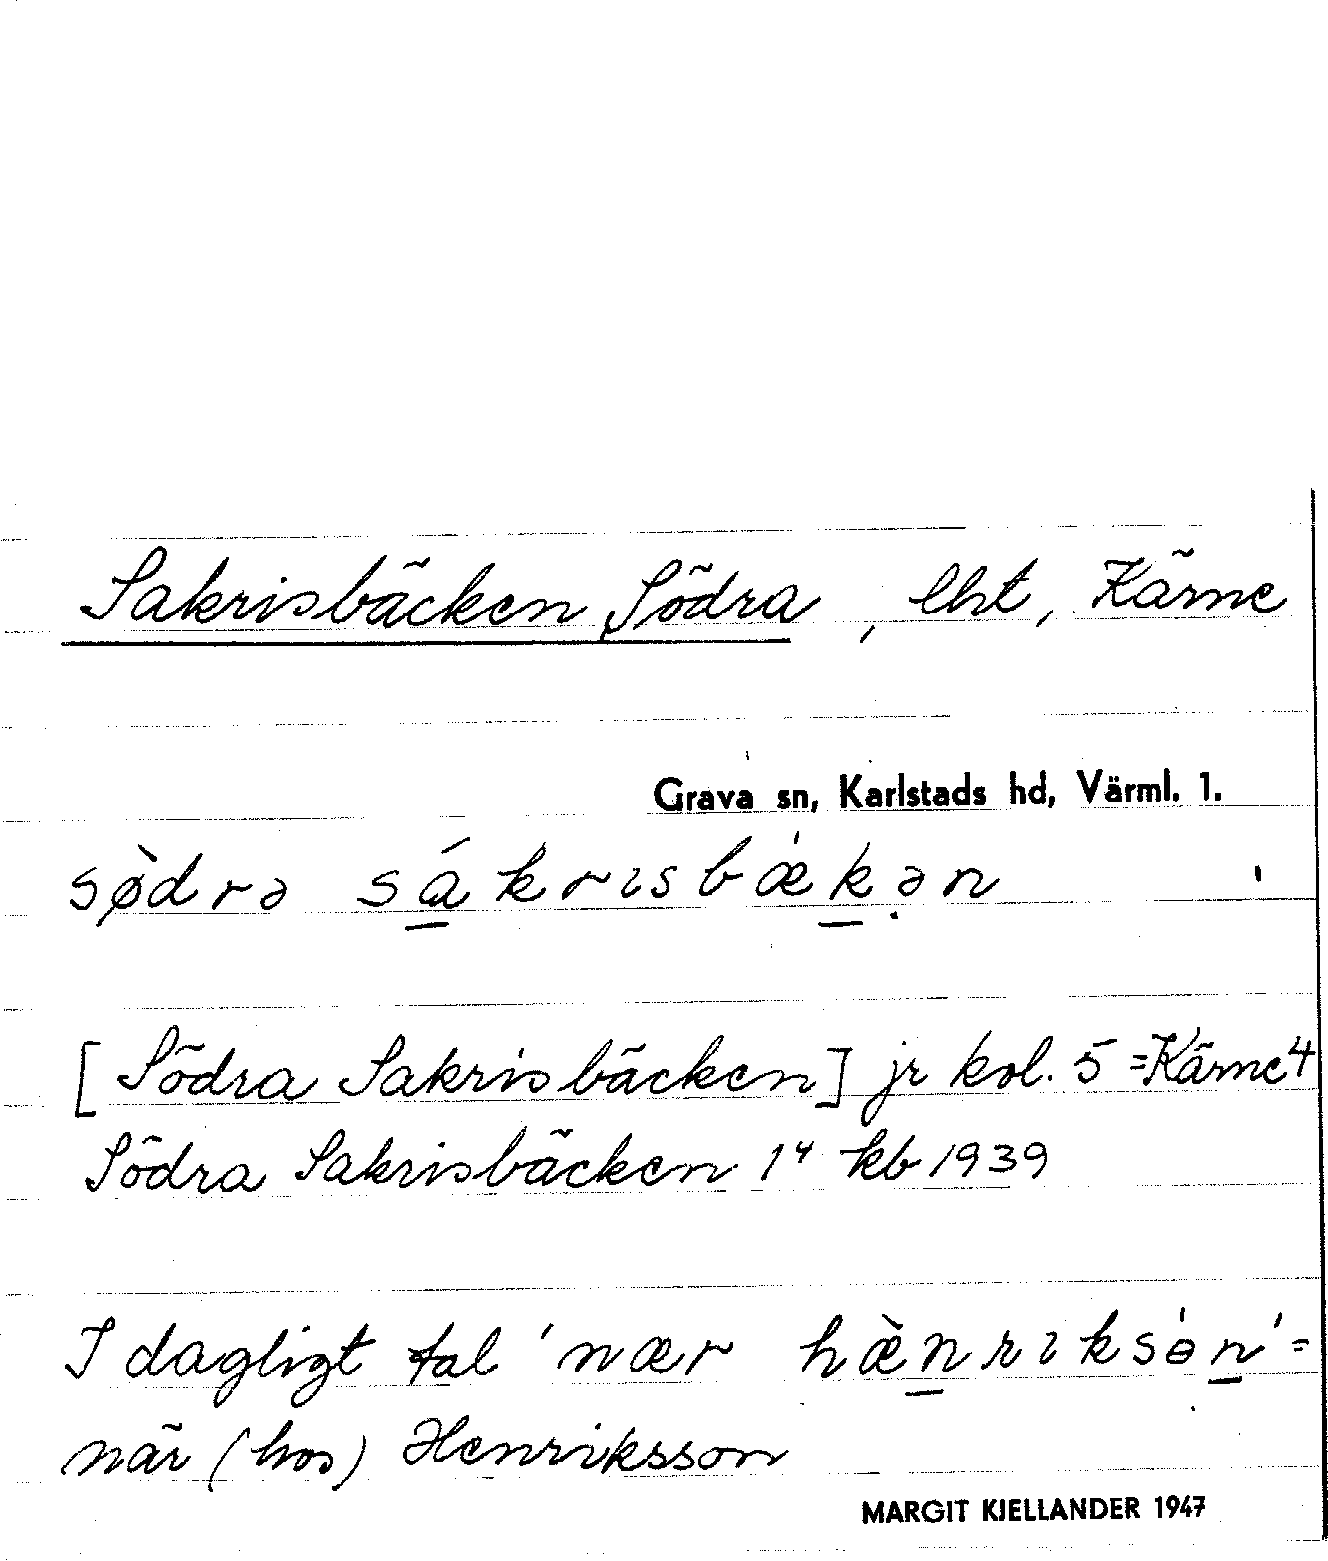 Sakrisbäcken, Södra, lht, Kärne
Grava sn, Karlstads hd, Värml. 1.
sø̀drə sákrɪsbæ̀kən
[Södra Sakrisbäcken] jr kol. 5 = Kärne 4
Södra Sakrisbäcken 1⁴ kb 1939
I dagligt tal 'nær hæ̀nrɪksə̀n' =
när (hos) Henriksson
MARGIT KJELLANDER 1947